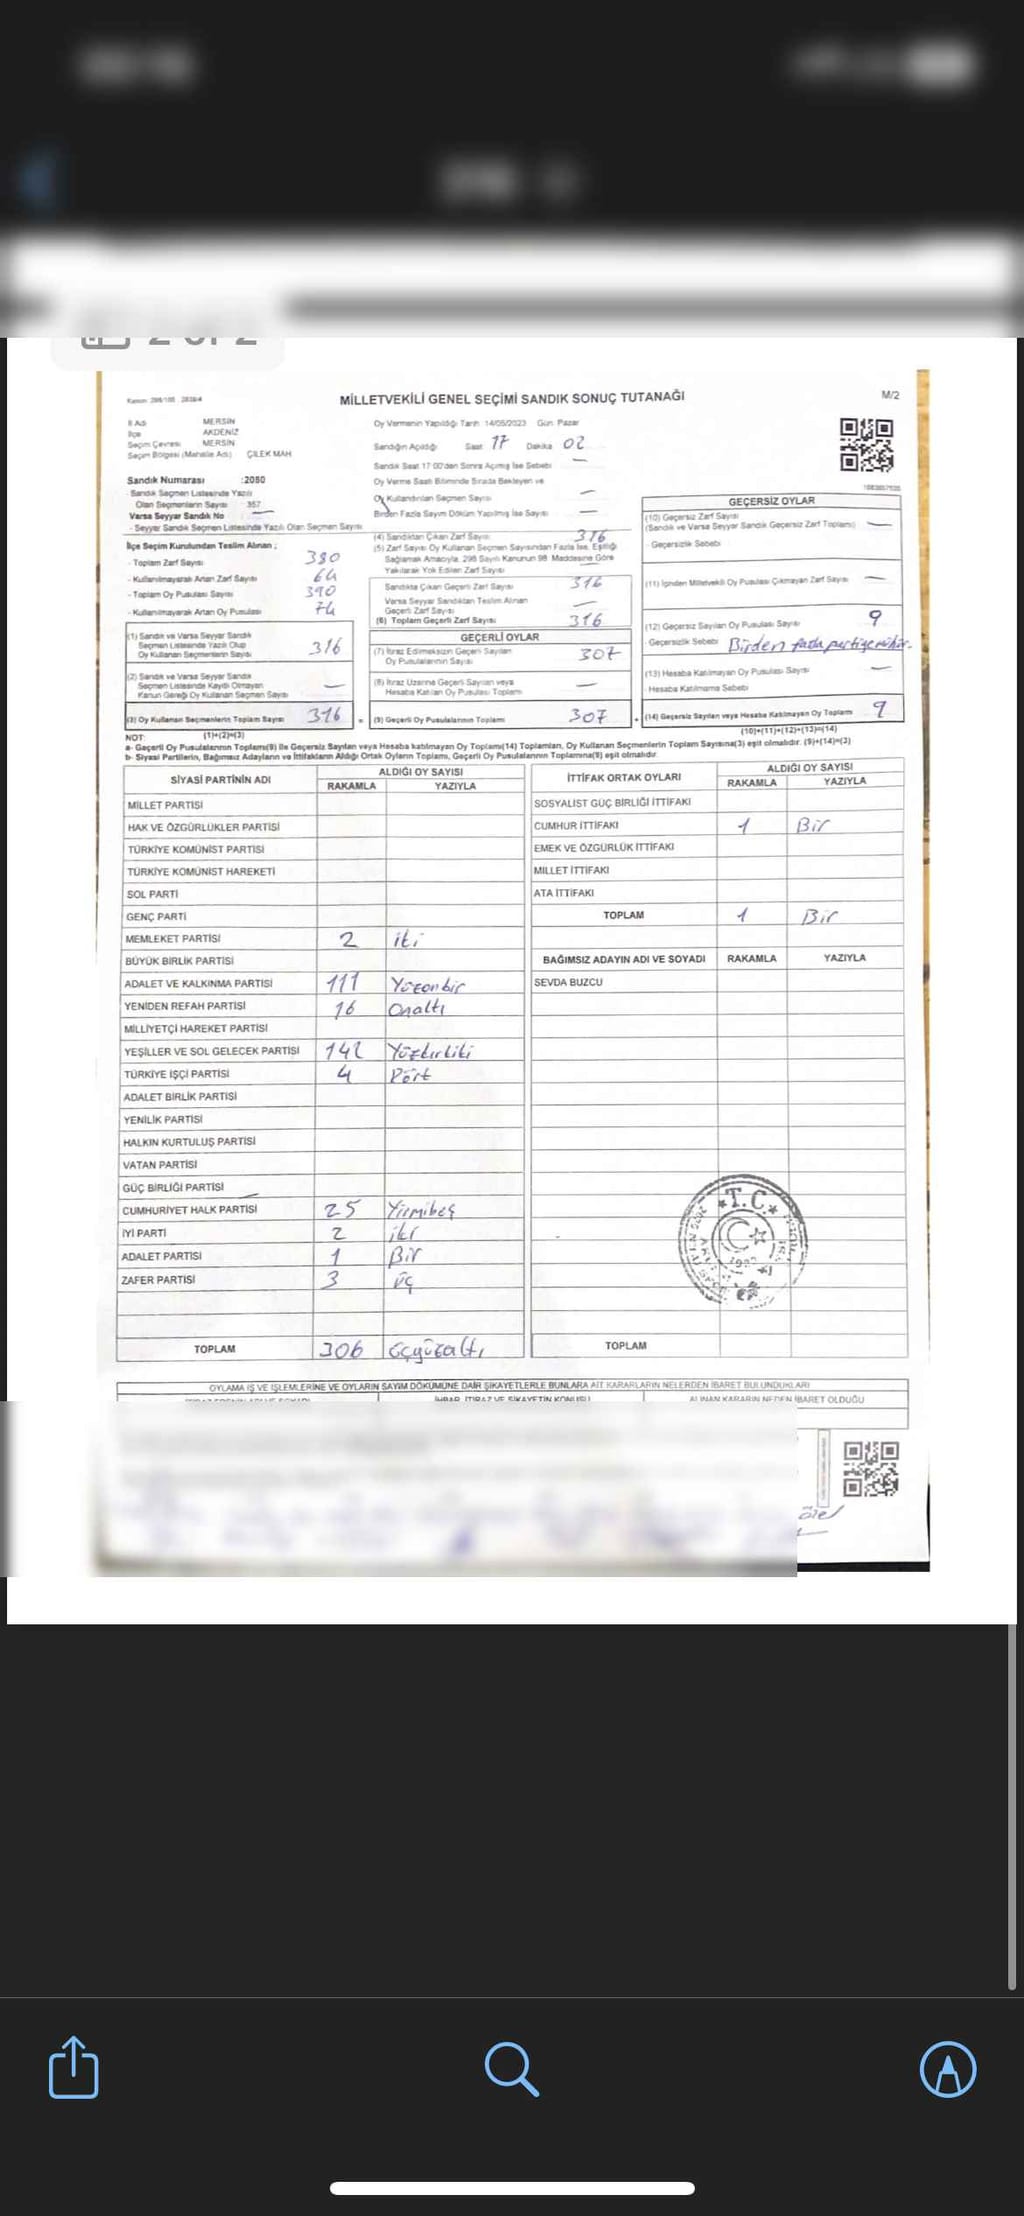 2 of 2
Kanun: 298/105 - 2839/4
MİLLETVEKİLİ GENEL SEÇİMİ SANDIK SONUÇ TUTANAĞI
M/2
İl Adı MERSİN
İlçe AKDENİZ
Seçim Çevresi MERSİN
Seçim Bölgesi (Mahalle Adı) ÇİLEK MAH
Oy Vermenin Yapıldığı Tarih: 14/05/2023 Gün: Pazar
Sandığın Açıldığı Saat 17 Dakika 02
Sandık Saat 17:00'den Sonra Açılmış İse Sebebi —
Oy Verme Saati Bitiminde Sırada Bekleyen ve
Oy Kullandırılan Seçmen Sayısı —
Birden Fazla Sayım Döküm Yapılmış İse Sayısı —
Sandık Numarası :2080
- Sandık Seçmen Listesinde Yazılı
Olan Seçmenlerin Sayısı 357
Varsa Seyyar Sandık No —
- Seyyar Sandık Seçmen Listesinde Yazılı Olan Seçmen Sayısı
İlçe Seçim Kurulundan Teslim Alınan ;
- Toplam Zarf Sayısı 380
- Kullanılmayarak Artan Zarf Sayısı 64
- Toplam Oy Pusulası Sayısı 390
- Kullanılmayarak Artan Oy Pusulası 74
(1) Sandık ve Varsa Seyyar Sandık
Seçmen Listesinde Yazılı Olup
Oy Kullanan Seçmenlerin Sayısı 316
(2) Sandık ve Varsa Seyyar Sandık
Seçmen Listesinde Kaydı Olmayan
Kanun Gereği Oy Kullanan Seçmen Sayısı —
(3) Oy Kullanan Seçmenlerin Toplam Sayısı 316
(4) Sandıktan Çıkan Zarf Sayısı 316
(5) Zarf Sayısı Oy Kullanan Seçmen Sayısından Fazla İse, Eşitliği
Sağlamak Amacıyla, 298 Sayılı Kanunun 98. Maddesine Göre
Yakılarak Yok Edilen Zarf Sayısı —
Sandıkta Çıkan Geçerli Zarf Sayısı 316
Varsa Seyyar Sandıktan Teslim Alınan
Geçerli Zarf Sayısı —
(6) Toplam Geçerli Zarf Sayısı 316
GEÇERLİ OYLAR
(7) İtiraz Edilmeksizin Geçerli Sayılan
Oy Pusulalarının Sayısı 307
(8) İtiraz Üzerine Geçerli Sayılan veya
Hesaba Katılan Oy Pusulası Toplamı —
= (9) Geçerli Oy Pusulalarının Toplamı 307
GEÇERSİZ OYLAR
(10) Geçersiz Zarf Sayısı
(Sandık ve Varsa Seyyar Sandık Geçersiz Zarf Toplamı) —
- Geçersizlik Sebebi
(11) İçinden Milletvekili Oy Pusulası Çıkmayan Zarf Sayısı —
(12) Geçersiz Sayılan Oy Pusulası Sayısı 9
- Geçersizlik Sebebi Birden fazla partiye mühür.
(13) Hesaba Katılmayan Oy Pusulası Sayısı —
- Hesaba Katılmama Sebebi
+ (14) Geçersiz Sayılan veya Hesaba Katılmayan Oy Toplamı 9
NOT: (1)+(2)=(3) (10)+(11)+(12)+(13)=(14)
a- Geçerli Oy Pusulalarının Toplamı(9) ile Geçersiz Sayılan veya Hesaba katılmayan Oy Toplamı(14) Toplamları, Oy Kullanan Seçmenlerin Toplam Sayısına(3) eşit olmalıdır. (9)+(14)=(3)
b- Siyasi Partilerin, Bağımsız Adayların ve İttifakların Aldığı Ortak Oyların Toplamı, Geçerli Oy Pusulalarının Toplamına(9) eşit olmalıdır.
SİYASİ PARTİNİN ADI ALDIĞI OY SAYISI
RAKAMLA YAZIYLA
MİLLET PARTİSİ
HAK VE ÖZGÜRLÜKLER PARTİSİ
TÜRKİYE KOMÜNİST PARTİSİ
TÜRKİYE KOMÜNİST HAREKETİ
SOL PARTİ
GENÇ PARTİ
MEMLEKET PARTİSİ 2 iki
BÜYÜK BİRLİK PARTİSİ
ADALET VE KALKINMA PARTİSİ 111 Yüzonbir
YENİDEN REFAH PARTİSİ 16 Onaltı
MİLLİYETÇİ HAREKET PARTİSİ
YEŞİLLER VE SOL GELECEK PARTİSİ 142 Yüzkırkiki
TÜRKİYE İŞÇİ PARTİSİ 4 Dört
ADALET BİRLİK PARTİSİ
YENİLİK PARTİSİ
HALKIN KURTULUŞ PARTİSİ
VATAN PARTİSİ
GÜÇ BİRLİĞİ PARTİSİ
CUMHURİYET HALK PARTİSİ 25 Yirmibeş
İYİ PARTİ 2 iki
ADALET PARTİSİ 1 Bir
ZAFER PARTİSİ 3 üç
TOPLAM 306 üçyüzaltı
İTTİFAK ORTAK OYLARI ALDIĞI OY SAYISI
RAKAMLA YAZIYLA
SOSYALİST GÜÇ BİRLİĞİ İTTİFAKI
CUMHUR İTTİFAKI 1 Bir
EMEK VE ÖZGÜRLÜK İTTİFAKI
MİLLET İTTİFAKI
ATA İTTİFAKI
TOPLAM 1 Bir
BAĞIMSIZ ADAYIN ADI VE SOYADI RAKAMLA YAZIYLA
SEVDA BUZCU
T.C.
TOPLAM
OYLAMA İŞ VE İŞLEMLERİNE VE OYLARIN SAYIM DÖKÜMÜNE DAİR ŞİKAYETLERLE BUNLARA AİT KARARLARIN NELERDEN İBARET BULUNDUKLARI
İHBAR, İTİRAZ VE ŞİKAYETİN KONUSU ALINAN KARARIN NEDEN İBARET OLDUĞU